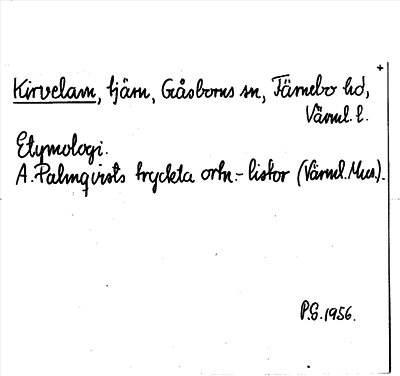 Kirvelam, tjärn, Gåsborns sn, Färnebo hd,
Värml. l.
Etymologi.
A. Palmqvists tryckta ortn.-listor (Värml. Mus.).
P.G. 1956.